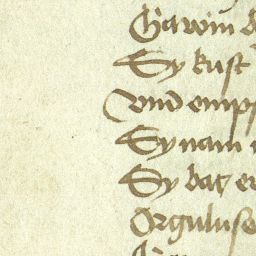 Gawin d
Sy kust
Vnd empf
Sy nam
Sy bat er
Orguluse